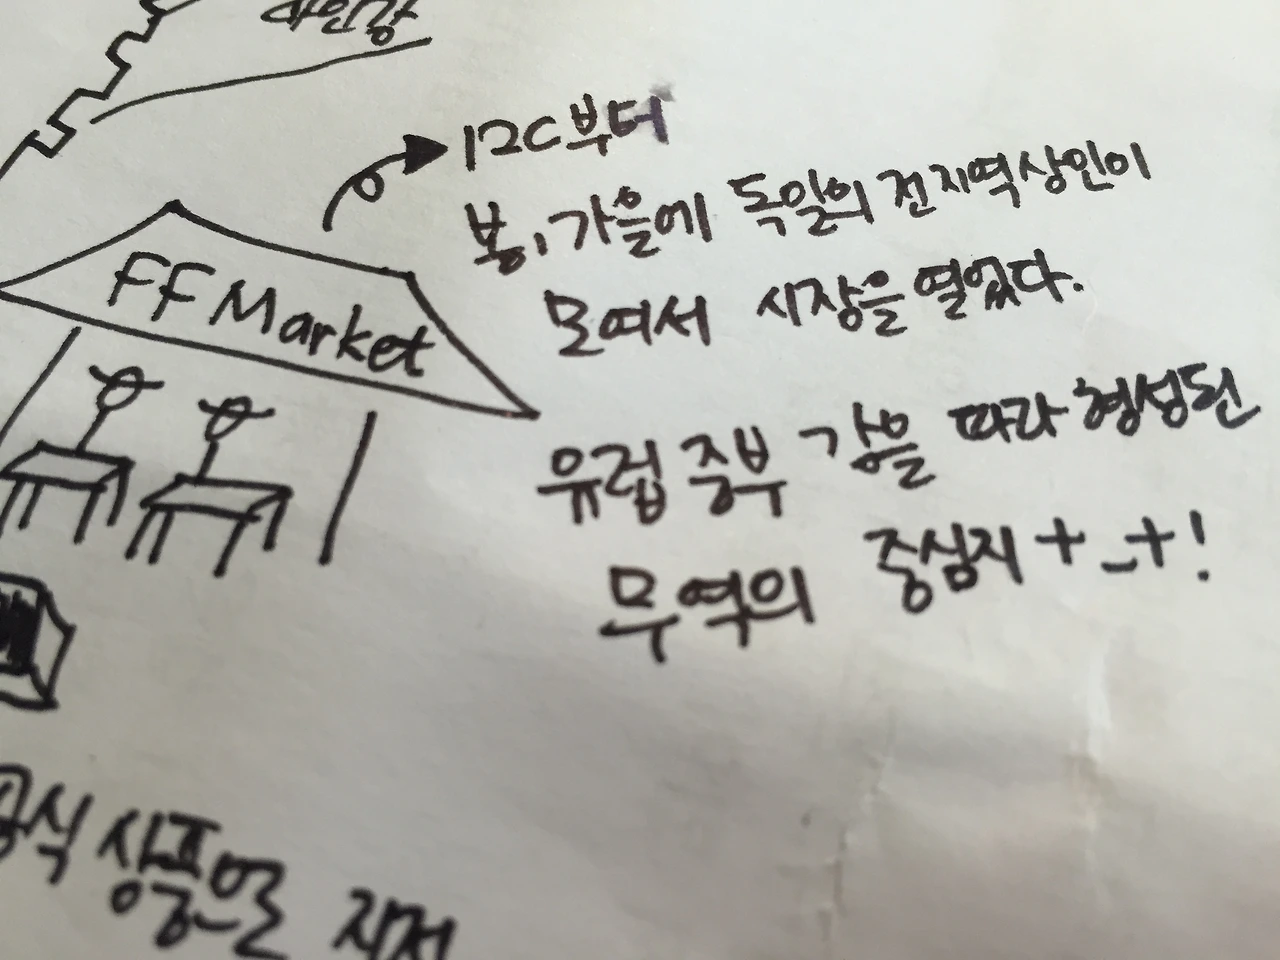 12C부터
봄, 가을에 독일의 전지역상인이
모여서 시장을 열었다.
FF Market
유럽 중부 강을 따라 형성된
무역의 중심지 +_+!
상품은